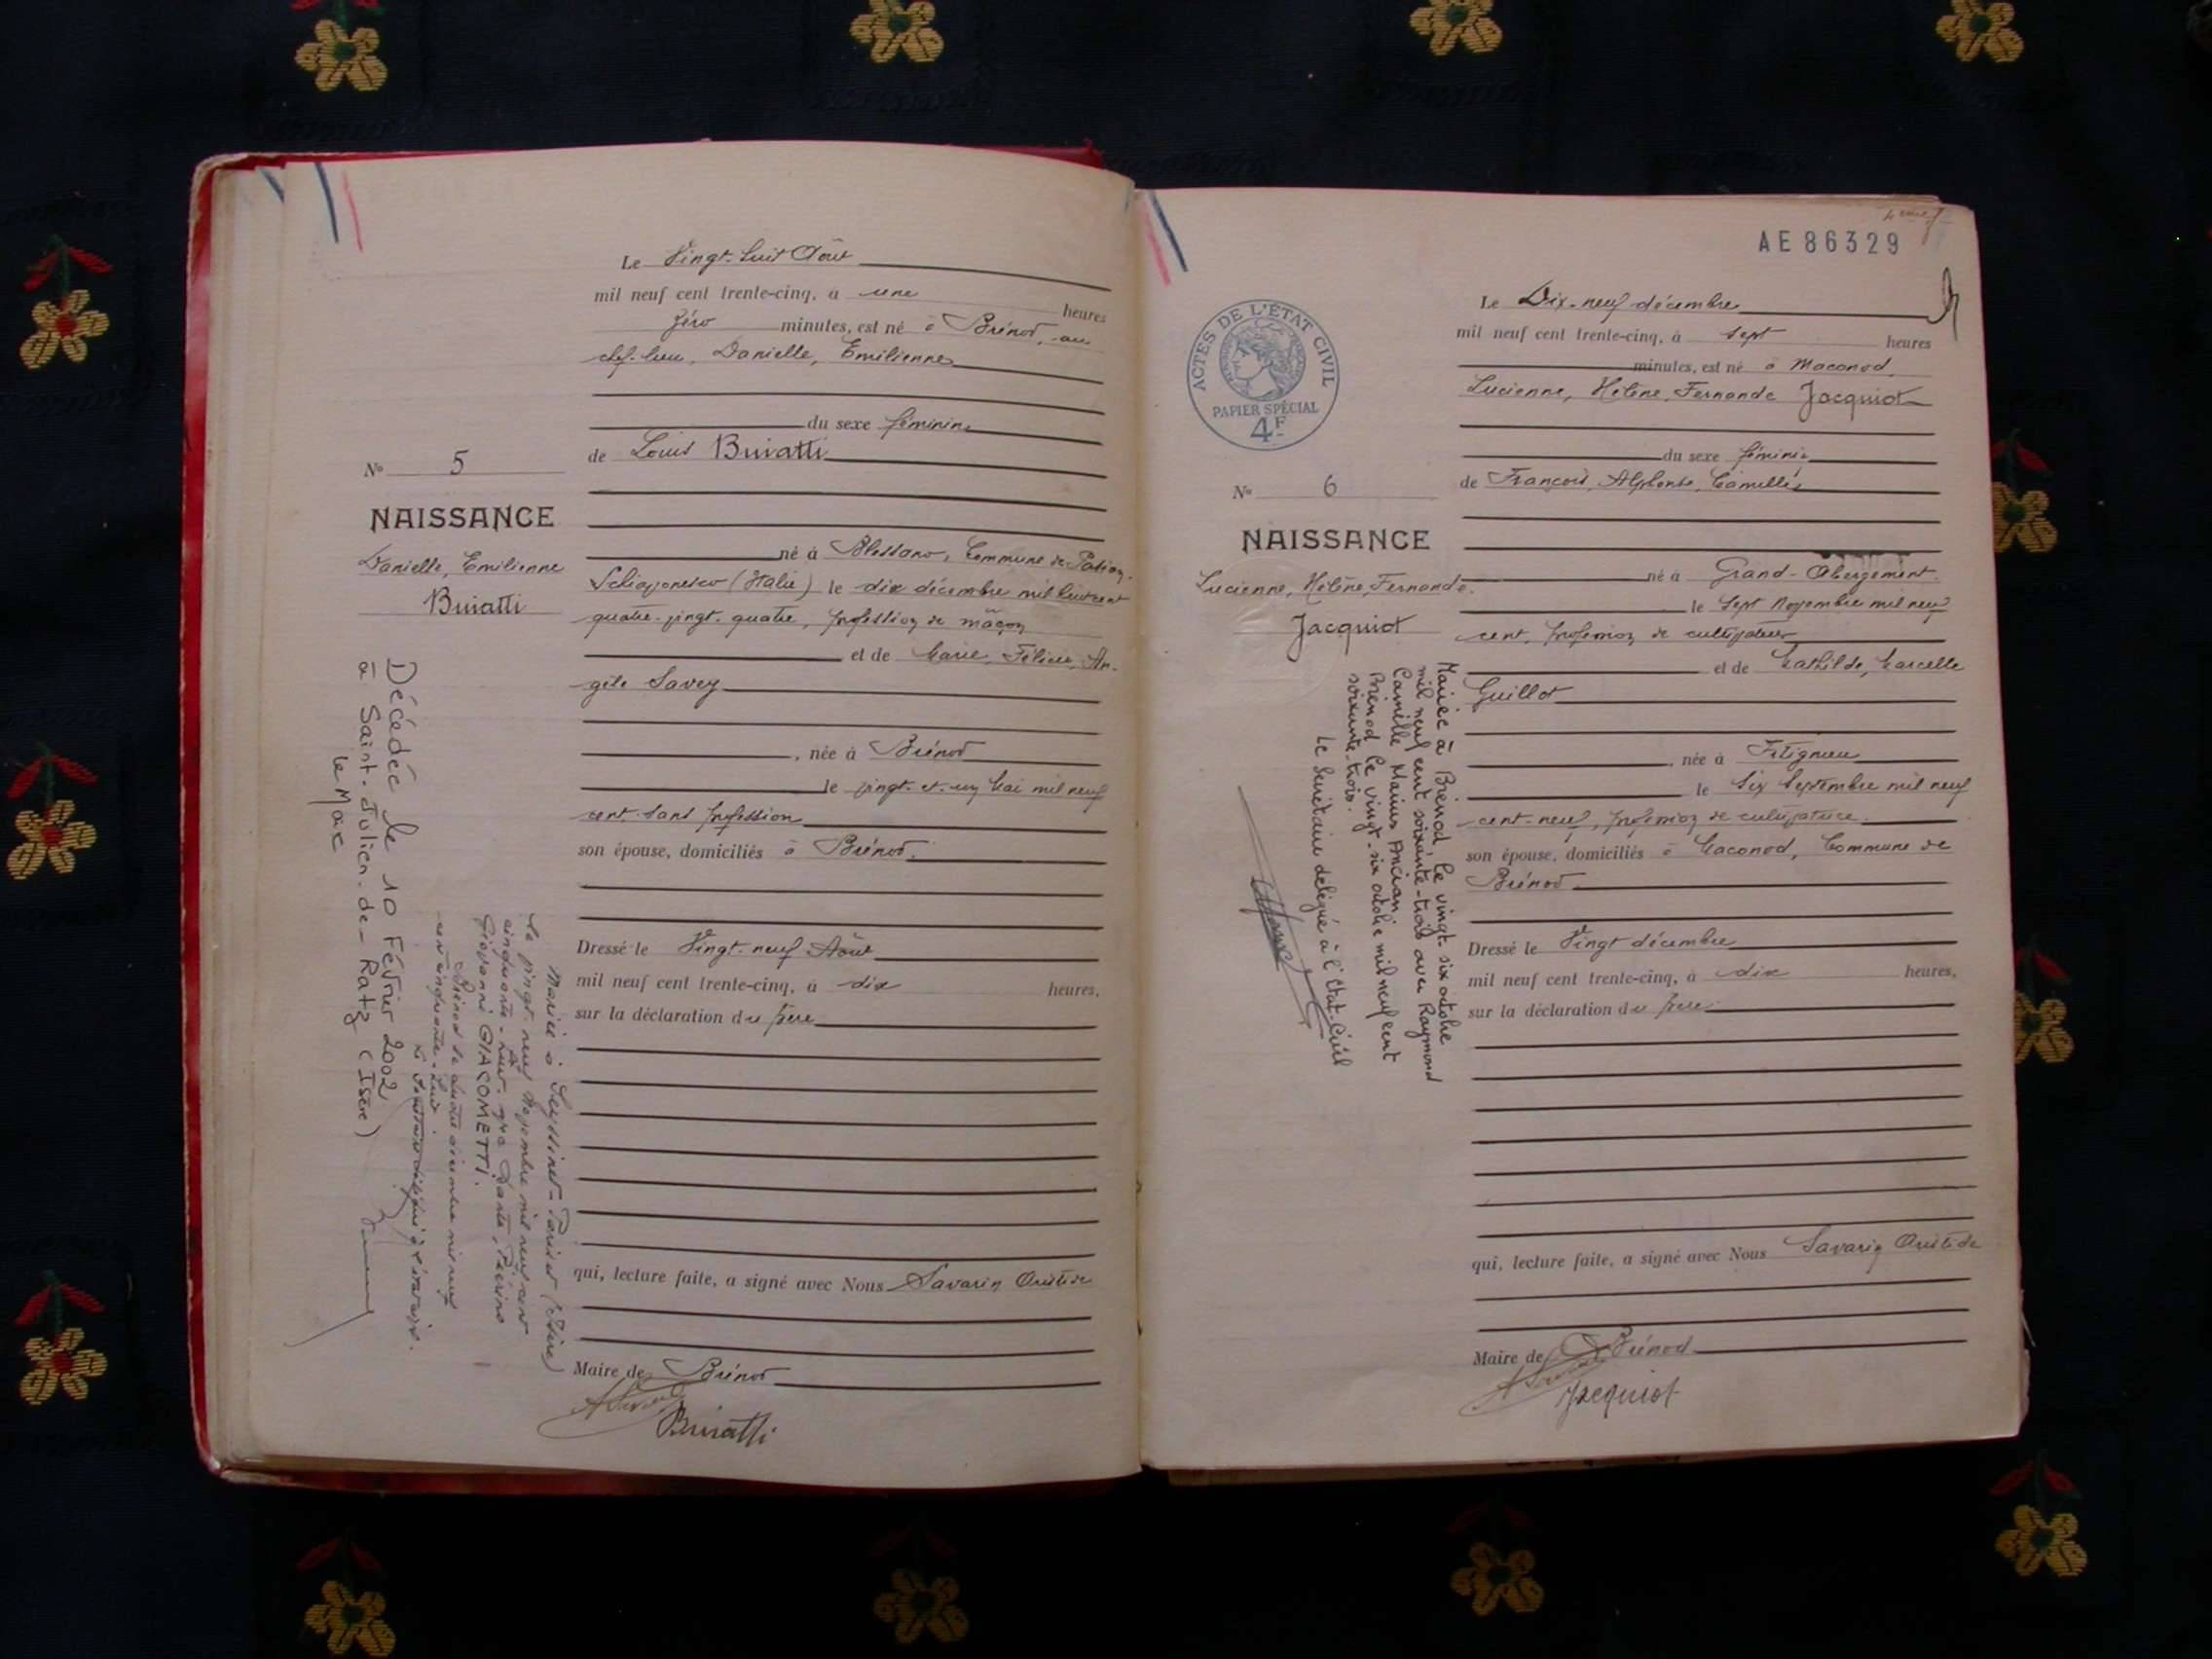 Le Vingt-huit Août
mil neuf cent trente-cinq, à une heures
zéro minutes, est né à Brénod, au
chef-lieu, Danielle, Emilienne
du sexe féminin
de Louis Buiatti
né à Blessano, Commune de
(Italie) le dix décembre mil huit cent
quatre-vingt-quatre, profession de maçon
et de Marie, Félicie, An-
gèle Savey
, née à Brénod
le vingt-et-un Mai mil neuf
cent sans profession
son épouse, domiciliés à Brénod.
Dressé le Vingt-neuf Août
mil neuf cent trente-cinq, à dix heures,
sur la déclaration du père
qui, lecture faite, a signé avec Nous Savarin Aristide
Maire de Brénod
Buiatti
No 5
NAISSANCE
Danielle, Emilienne
Buiatti
Décédée le 10 Février 2002
à Saint-Julien-de-Ratz (Isère)
le Maire
Mariée à Seyssinet-Pariset (Isère)
le vingt-neuf Novembre mil neuf cent
cinquante-huit avec Dante, Pierino
Giovanni GIACOMETTI.
Brénod le décembre mil neuf
cent cinquante-huit
AE 86329
ACTES DE L'ÉTAT CIVIL
PAPIER SPÉCIAL
4F
No 6
NAISSANCE
Lucienne, Hélène, Fernande.
Jacquiot
Mariée à Brénod, le vingt-six octobre
mil neuf cent soixante-trois avec Raymond
Camille Marius Ancian.
Brénod le vingt-six octobre mil neuf cent
soixante-trois.
Le Secrétaire délégué à l'Etat-Civil
Le Dix-neuf décembre
mil neuf cent trente-cinq, à sept heures
minutes, est né à Maconod,
Lucienne, Hélène, Fernande Jacquiot
du sexe féminin
de François, Alphonse, Camille
né à Grand-Abergement
le sept Novembre mil neuf
cent, profession de cultivateur
et de Mathilde, Marcelle
Guillot
, née à
le six Septembre mil neuf
cent-neuf, profession de cultivatrice
son épouse, domiciliés à Maconod, Commune de
Brénod
Dressé le Vingt décembre
mil neuf cent trente-cinq, à dix heures,
sur la déclaration du père
qui, lecture faite, a signé avec Nous Savarin Aristide
Maire de Brénod
Jacquiot